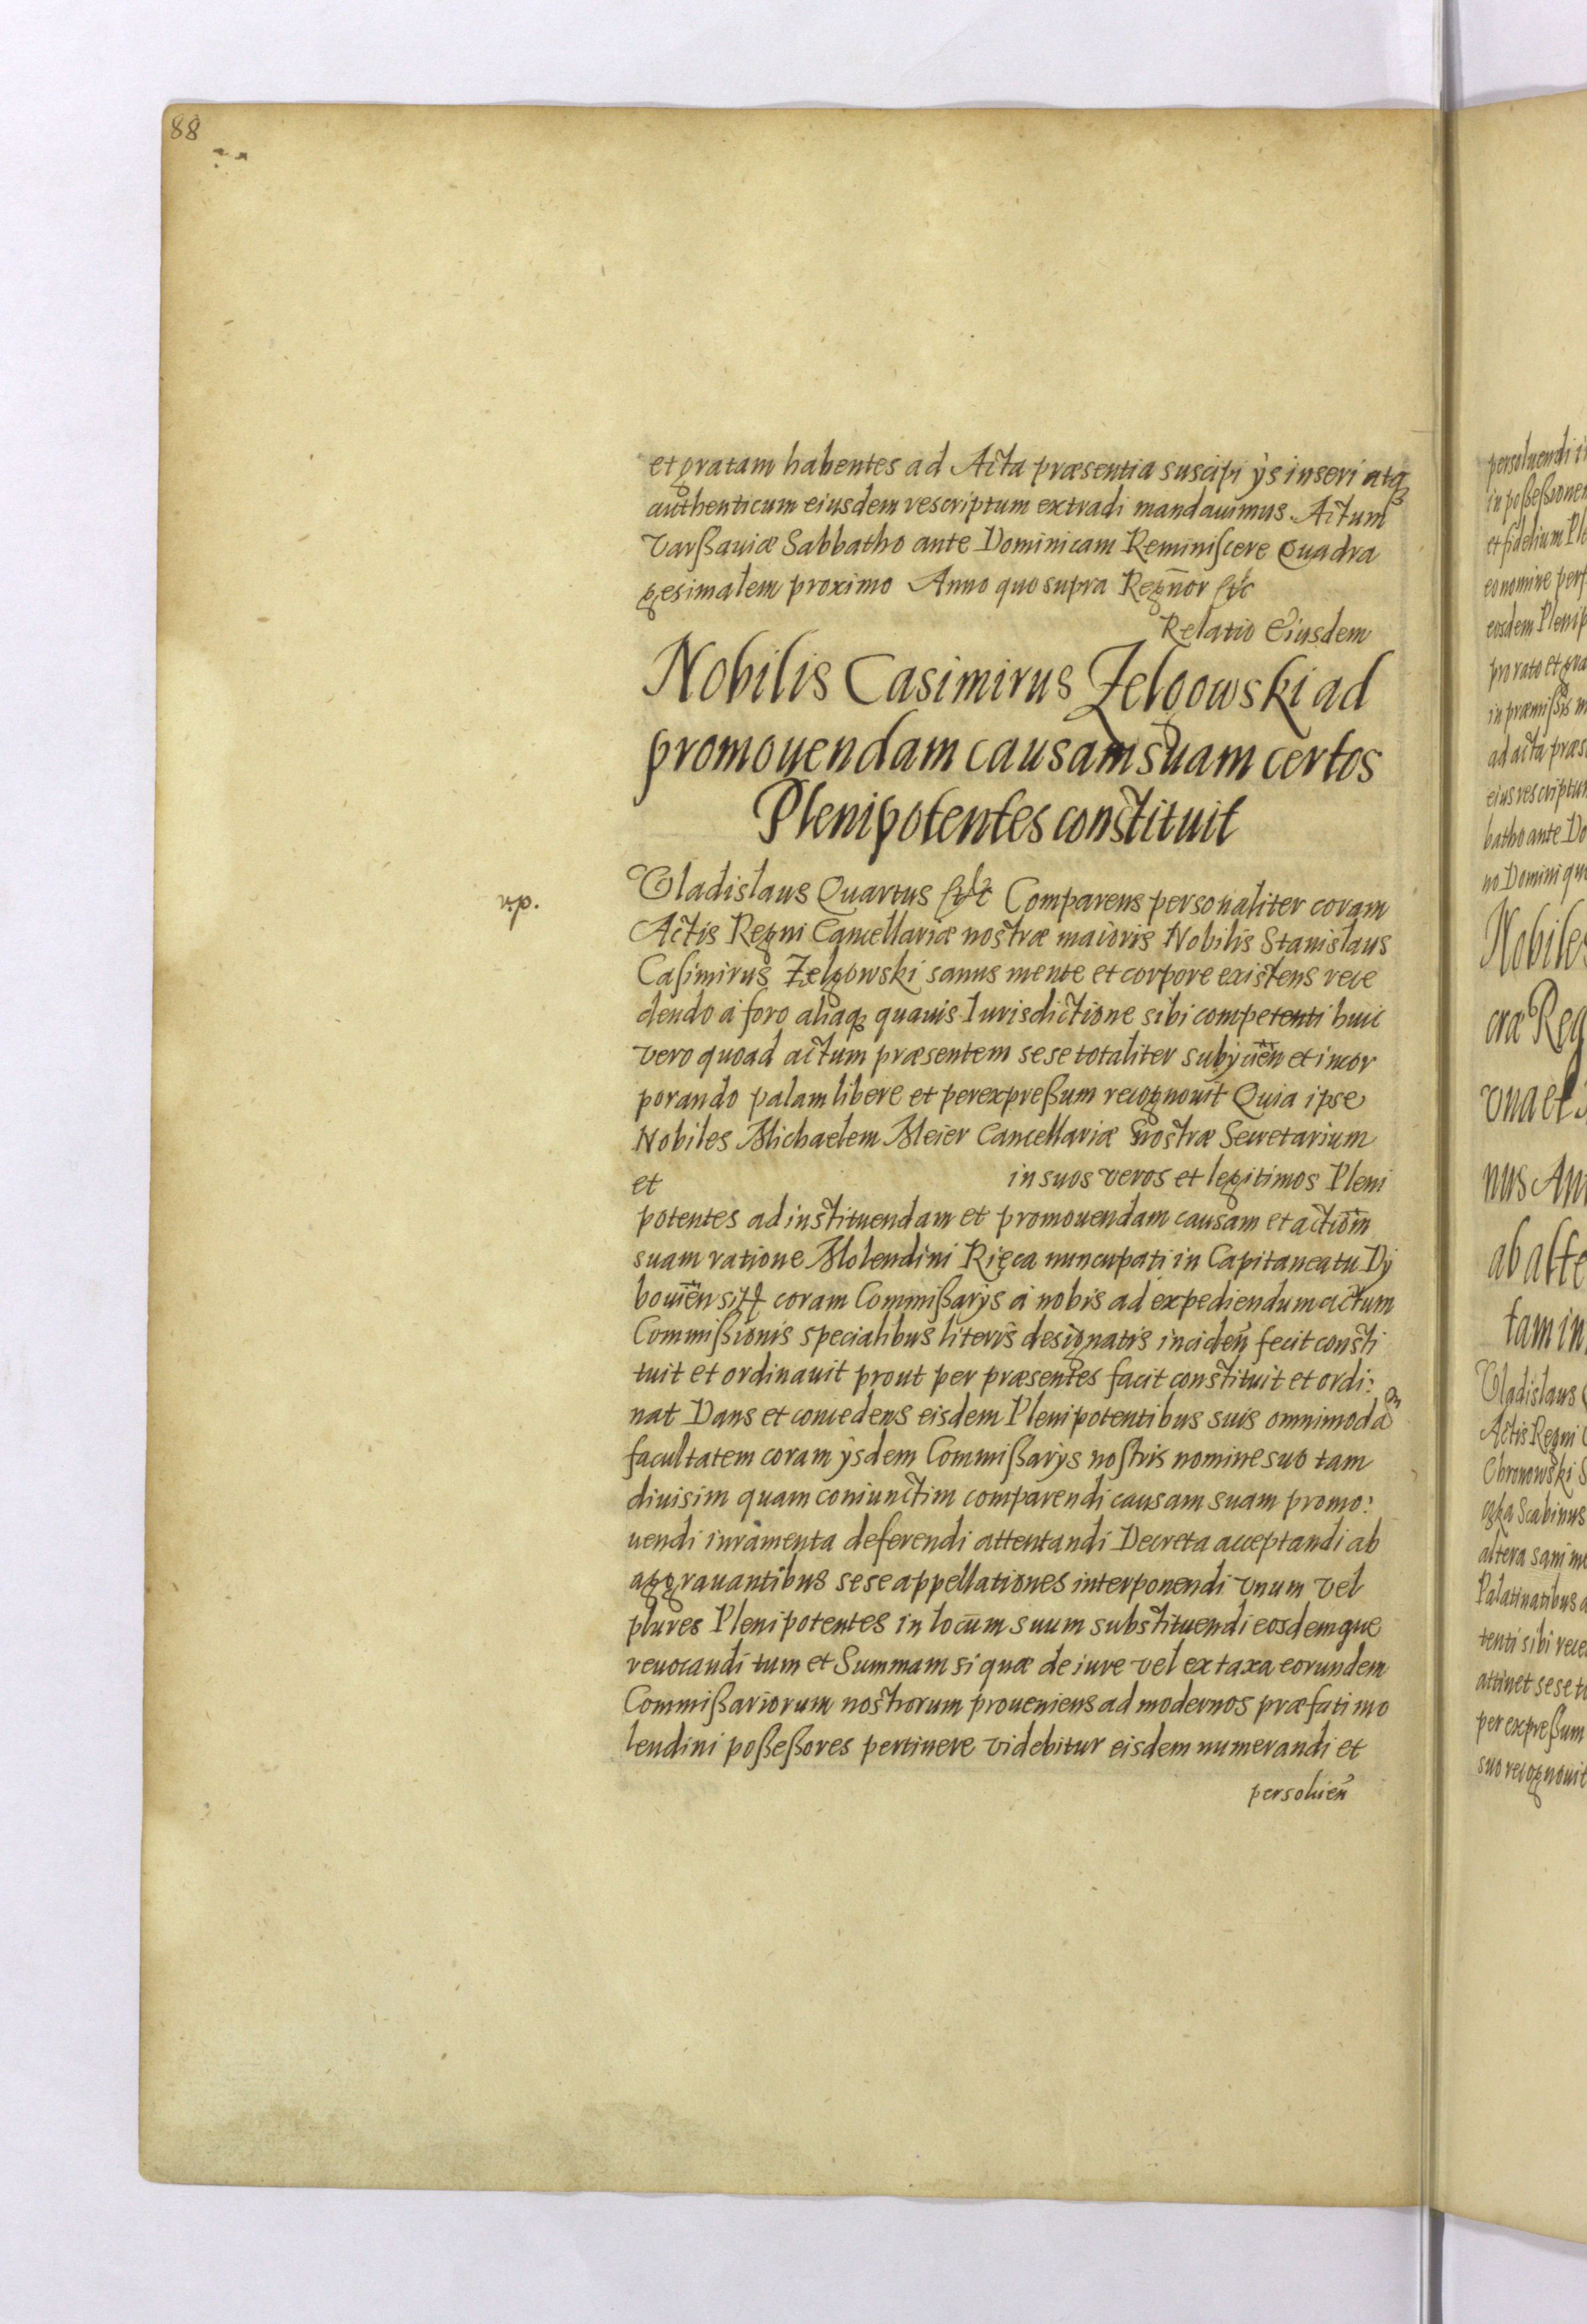 88
et gratam habentes ad Acta præsentia suscipi ÿs inseri atq₃
authenticum eiusdem rescriptum extradi mandauimus. Actum
Varßauiæ Sabbatho ante Dominicam Reminiscere Quadra
gesimalem proximo Anno quo supra Regn̄or etc
Relatio Eiusdem
Nobilis Casimirus Zelgowski ad
promouendam causam suam certos
Plenipotentes constituit
Vladislaus Quartus etc Comparens personaliter coram
Actis Regni Cancellariæ nostræ maioris Nobilis Stanislaus
Casimirus Zelgowski sanus mente et corpore existens rece
dendo à foro aliaq₃ quauis Iurisdictione sibi competenti huic
vero quoad actum præsentem sese totaliter subÿcien̄ et incor
porando palam libere et per expreßum recognouit Quia ipse
Nobiles Michaelem Meier Cancellariæ nostræ Secretarium
et in suos veros et legitimos Pleni
potentes ad instituendam et promouendam causam et actiōm
suam ratione Molendini Rięca nuncupati in Capitaneatu Dy
bouien̄ si coram Commißarÿs à nobis ad expediendum actum
Commißionis specialibus literis designatis inciden̄ fecit consti
tuit et ordinauit prout per præsentes facit constituit et ordi:
nat Dans et concedens eisdem Plenipotentibus suis omnimodā
facultatem coram ÿsdem Commißarÿs nostris nomine suo tam
diuisim quam coniunctim comparendi causam suam promo:
uendi iuramenta deferendi attentandi Decreta acceptandi ab
aggrauantibus sese appellationes interponendi vnum vel
plures Plenipotentes in locum suum substituendi eosdemque
reuocandi tum et Summam si quæ de iure vel ex taxa eorundem
Commißariorum nostrorum proueniens ad modernos præfati mo
lendini poßeßores pertinere videbitur eisdem numerandi et
persoluen̄